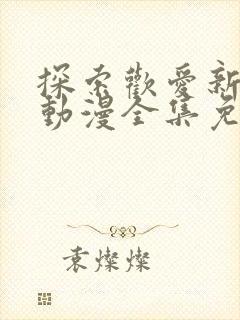 探索歡愛新
動漫全集免
袁燦燦